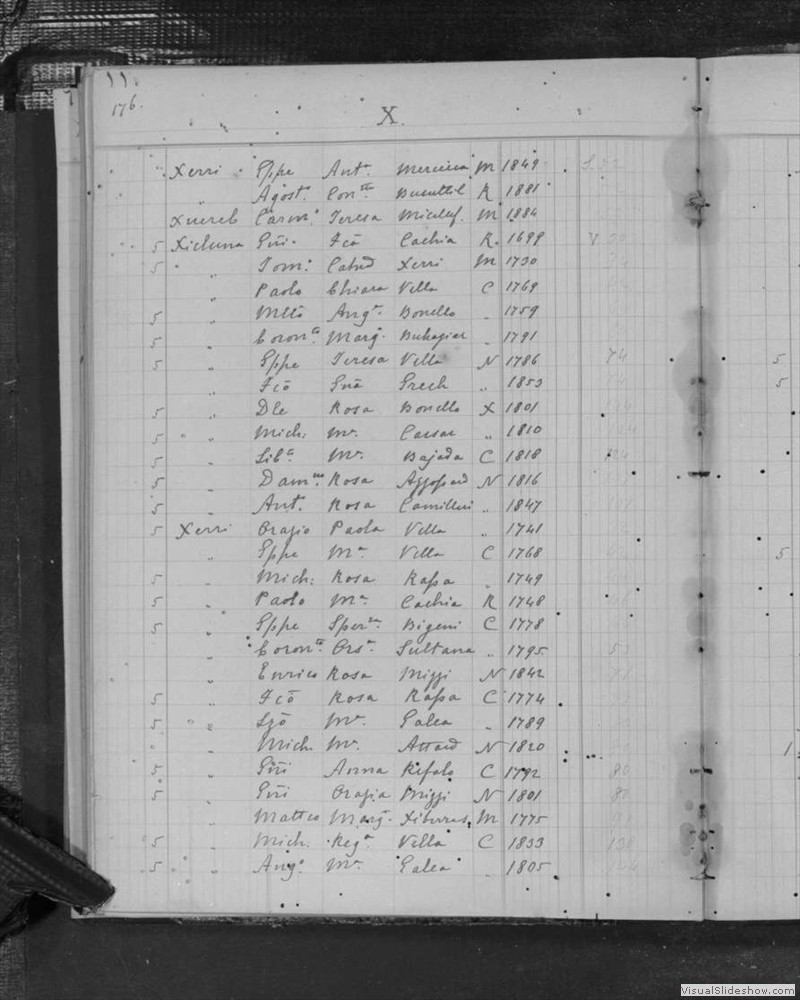 176.
X.
Xerri Gppe Ant.a Mercieca M 1849
" Agost. Con.tta Buenttil R 1881
Xuereb Carm. Teresa Micllef. M 1884
5 Xicluna Giñ. Fcō Cachia R. 1699
5 " Tom. Catnd Xerri M 1730
" Paolo Chiara Vella C 1769
5 " Mtto Ang.a Bonello " 1759
5 " Coron.to Marg. Buhagiar " 1791
5 " Gppe Teresa Vella N 1786 74 5
" Fcō Gnā Grech " 1853 5
5 " Dle Rosa Bonello X 1801
5 " Mich. M.a Caesar " 1810
5 " Lib.o M.a Bajada C 1818 124
5 " Dam.no Rosa Azzopard N 1816
5 " Ant. Rosa Camilleri " 1847
5 Xerri Orazio Paola Vella " 1741
" Gppe M.a Vella C 1768 5
5 " Mich. Rosa Rapa " 1749
5 " Paolo M.a Cachia R 1748
5 " Gppe Sper.za Bigeni C 1778
" Coron.to Ors.a Sultana " 1795
" Enrico Rosa Mizzi N 1842
5 " Fcō Rosa Rapa C 1774
5 " Lzō M.a Galea " 1789
" Mich. M.a Attard N 1820 1
5 " Giñi Anna Refalo C 1792 80
5 " Giñi Grazia Mizzi N 1801
" Matteo Marg. Xiberras, M 1775
5 " Mich. Reg.a Vella C 1833
5 " Ang.o M.a Galea " 1805
VisualSlideshow.com